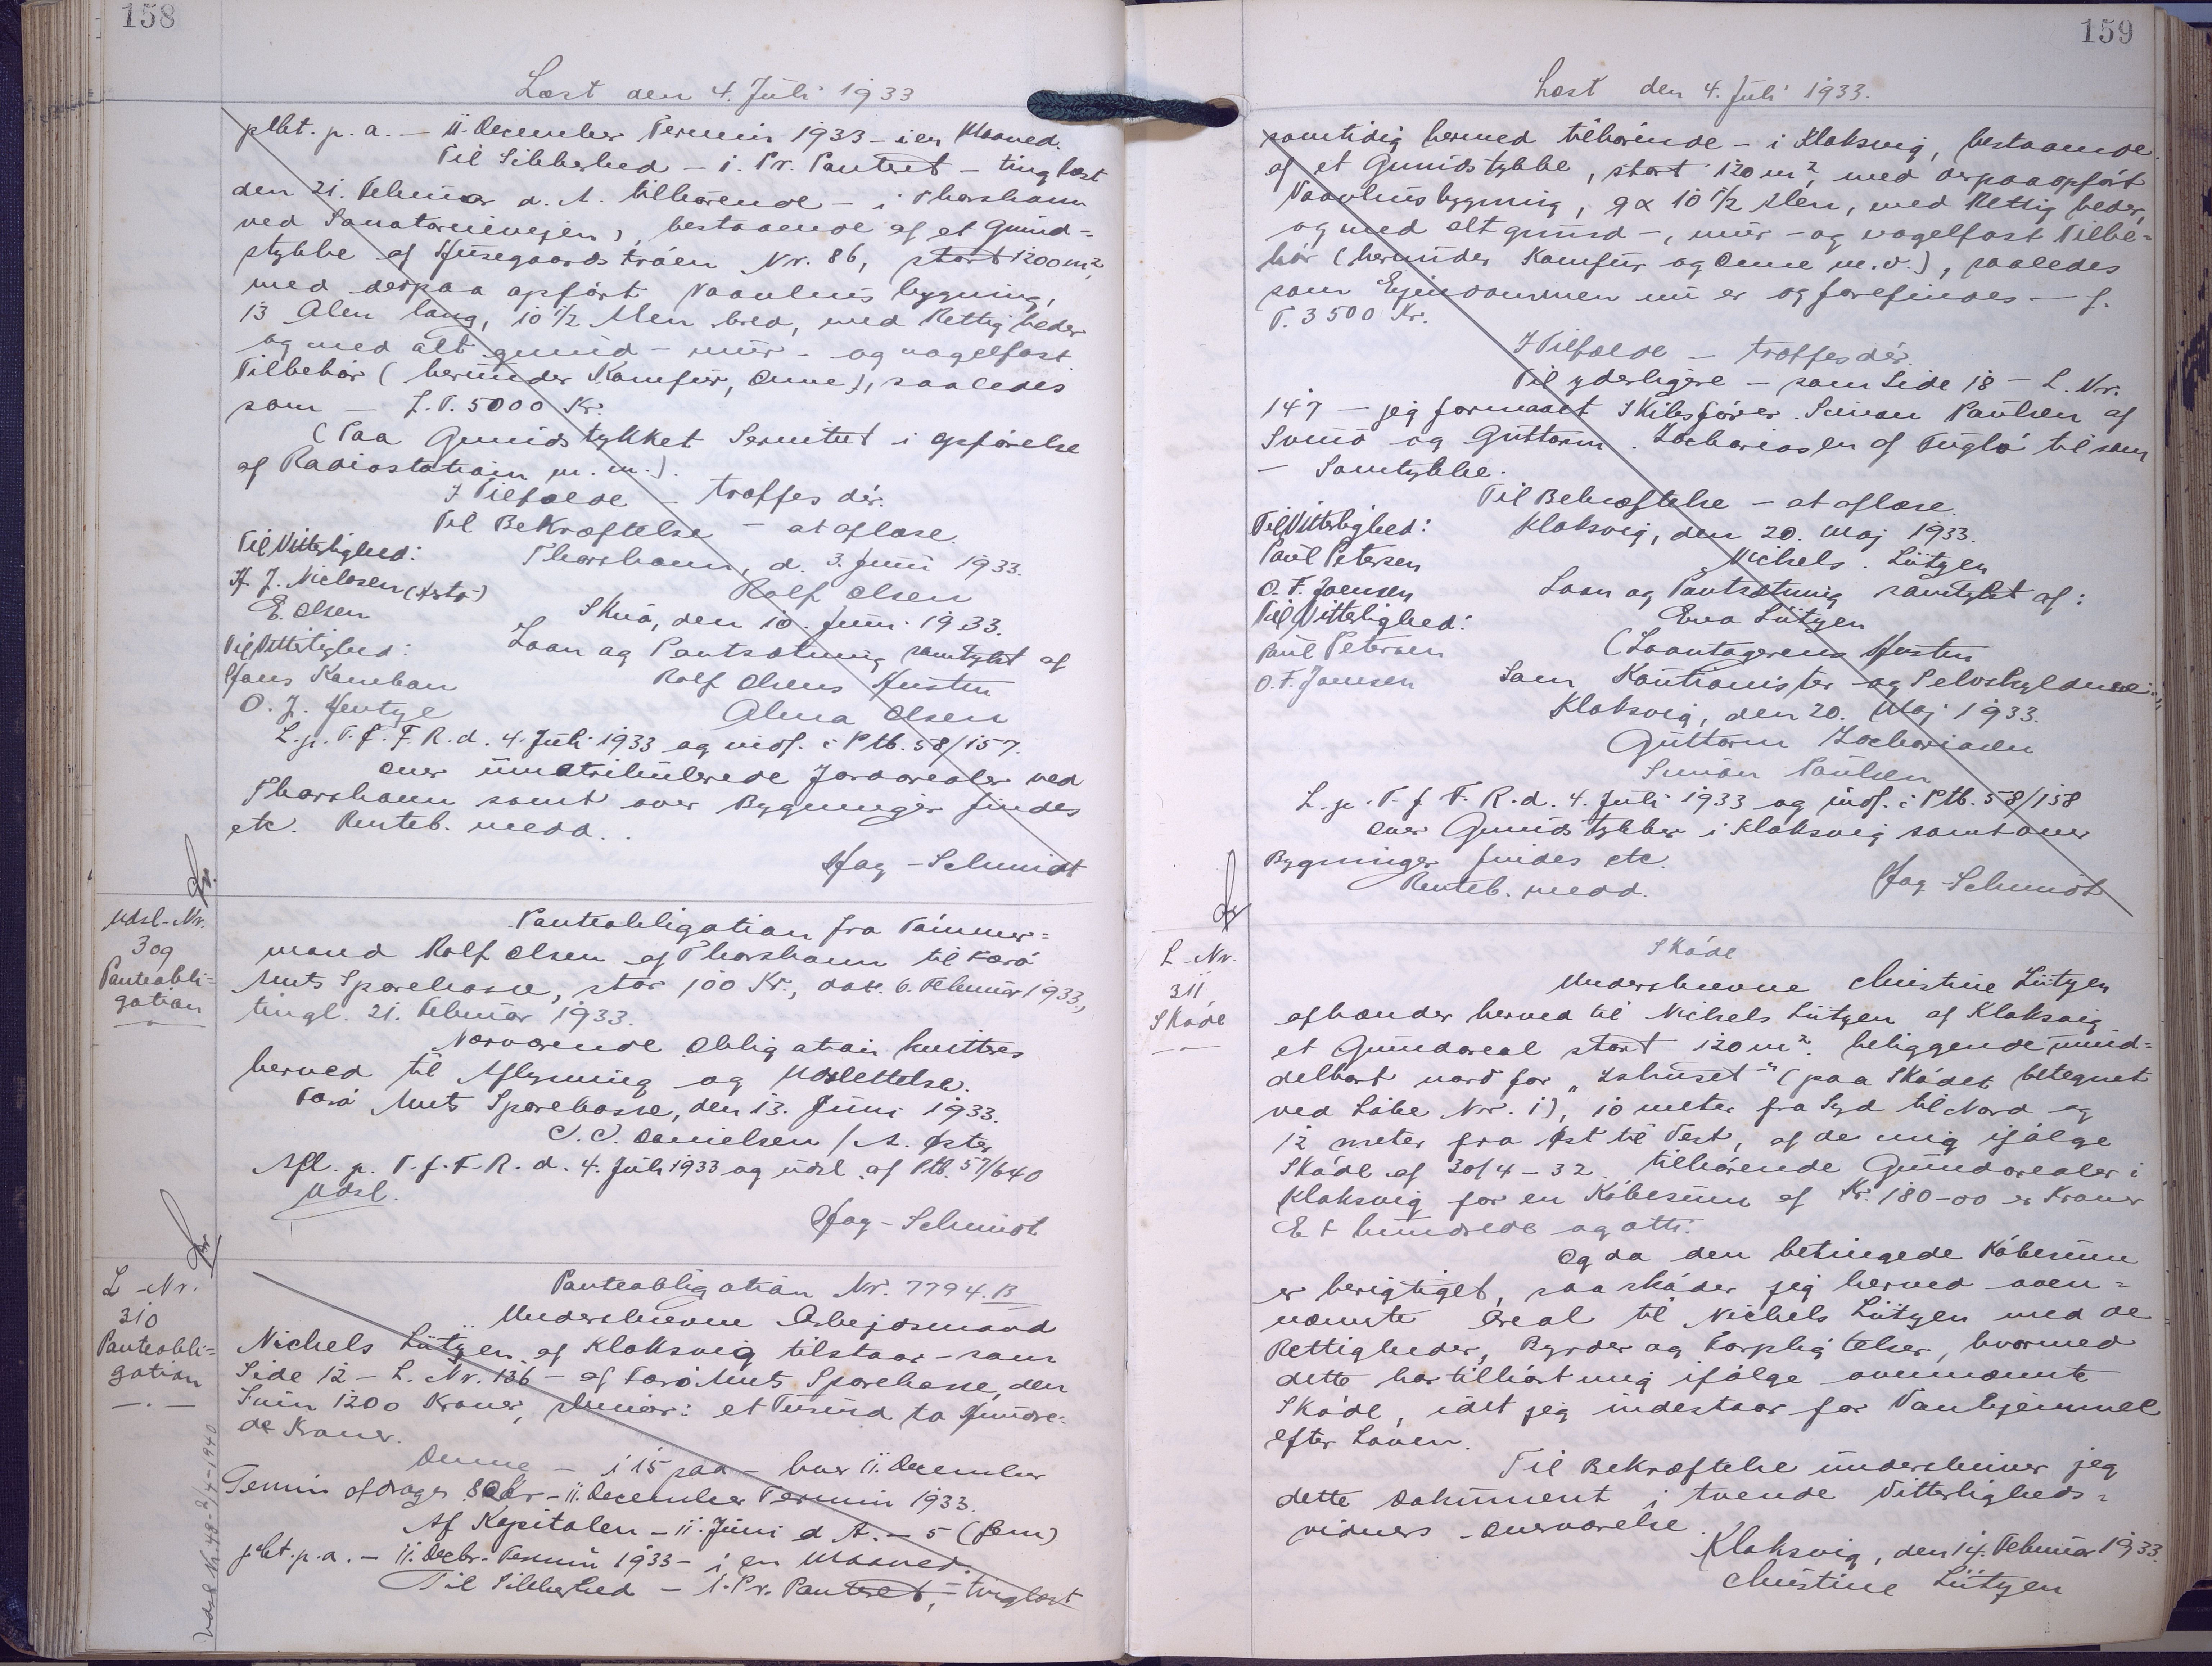 158
Læst den 4. Juli 1933
pCt. p. a. — 11. December Termin 1933 — i en Maaned.
Til Sikkerhed — 1. Pr. Panteret — tinglæst
den 21. Februar d. A. tilhørende — i Thorshavn
ved Sanatorievejen, bestaaende af et Grund=
stykke af Húsegaards tróen Nr. 86, stort 1200 m²,
med derpaa opført Vaaningshus bygning,
13 Alen lang, 10 1/2 Alen bred, med Rettigheder
og med alt grund- mur- og nagelfast
Tilbehør (herunder Komfur, Ovne), saaledes
som — f. T. 5000 Kr.
(Paa Grundstykket Servitut i opførelse
af Radiostation m. m.).
I Tilfælde — træffes dér.
Til Bekræftelse — at aflæse.
Til Vitterlighed: Thorshavn, d. 3. Juni 1933.
H. J. Niclasen Rolf Olsen
E. Olsen Skuó, den 10. Juni 1933.
Til Vitterlighed: Laan og Pantsætning samtykt af
Hans Kamban Rolf Olsens Hustru
O. J. Hentze Alma Olsen
L. p. T. f. F. R. d. 4. Juli 1933 og indf. i Ptb. 58/157.
Over umatrikulerede Jordarealer ved
Thorshavn samt over Bygninger findes
etc. Renteb. medd.
Hag-Schmidt
Udsl-Nr.
309
Panteobli=
gation
Panteobligation fra Tømmer=
mand Rolf Olsen af Thorshavn til Færø
Amts Sparekasse, stor 100 Kr., dat. 6. Februar 1933,
tingl. 21. Februar 1933.
Nærværende Obligation kvitteres
herved til Aflysning og Udslettelse.
Færø Amts Sparekasse, den 13. Juni 1933.
J. J. Danielsen / A. Øster
Afl. p. T. f. F. R. d. 4. Juli 1933 og udsl. af Ptb. 57/640
Udsl.
Hag-Schmidt
L-Nr.
310
Panteobli=
gation
Panteobligation Nr. 7794. B
Underskrevne Arbejdsmand
Nichels Lützen af Klaksvig tilstaar — som
Side 12 — L. Nr. 136 — af Færø Amts Sparekasse, den
Sum 1200 Kroner, skriver: et Tusind to Hundre=
de Kroner.
Denne — i 15 paa — hver 11. December
Termin afdrages 80 Kr — 11. December Termin 1933.
Af Kapitalen — 11. Juni d. A. — 5 (fem)
pCt. p. a. — 11. Decbr. Termin 1933 — i en Maaned.
Til Sikkerhed — 1. Pr. Panteret, — tinglæst
159
Læst den 4. Juli 1933.
samtidig hermed tilhørende — i Klaksvig, bestaaende
af et Grundstykke, stort 120 m², med derpaa opført
Vaaningshusbygning, 9 x 10 1/2 Alen, med Rettigheder,
og med alt grund-, mur- og nagelfast Tilbe=
hør (herunder Komfur og Ovne m. v.), saaledes
som Ejendommen nu er og forefindes — f.
T. 3500 Kr.
I Tilfælde — træffes dér.
Til yderligere — som Side 18 — L. Nr.
147 — jeg formaaet Skibsfører Simon Paulsen af
Svinó og Guttorm Zachariasen af Fugló til som
— Samtykke.
Til Bekræftelse — at aflæse.
Til Vitterlighed: Klaksvig, den 20. Maj 1933.
Paul Petersen Nichels Lützen
O. F. Joensen Laan og Pantsætning samtykt af:
Til Vitterlighed: Eva Lützen
Paul Petersen (Laantagerens Hustru
O. F. Joensen Som Kautionister og Selvskyldnere:
Klaksvig, den 20. Maj 1933.
Guttorm Zachariasen
Simon Paulsen
L. p. T. f. F. R. d. 4. Juli 1933 og indf. i Ptb. 58/158
Over Grundstykker i Klaksvig samt over
Bygninger findes etc.
Renteb. medd. Hag-Schmidt
L-Nr.
311
Skøde
Skøde
Underskrevne Christine Lützen
afhænder herved til Nichels Lützen af Klaksvig
et Grundareal stort 120 m². beliggende umid=
delbart nord for „Ishuset“ (paa Skødet betegnet
ved Løbe Nr. 1), 10 meter fra Syd til Nord og
12 meter fra Øst til Vest, af de mig ifølge
Skøde af 30/4-32. tilhørende Grundarealer i
Klaksvig for en Købesum af Kr. 180-00 er Kroner
Et hundrede og otti.
Og da den betingede Købesum
er berigtiget, saa skøder jeg herved oven=
nævnte Areal til Nichels Lützen med de
Rettigheder, Byrder og Forpligtelser, hvormed
dette har tilhørt mig ifølge ovennævnte
Skøde, idet jeg indestaar for Vanhjemmel
efter Loven.
Til Bekræftelse underskriver jeg
dette Dokument i tvende Vitterligheds=
vidners Overværelse.
Klaksvig, den 14. Februar 1933.
Christine Lützen